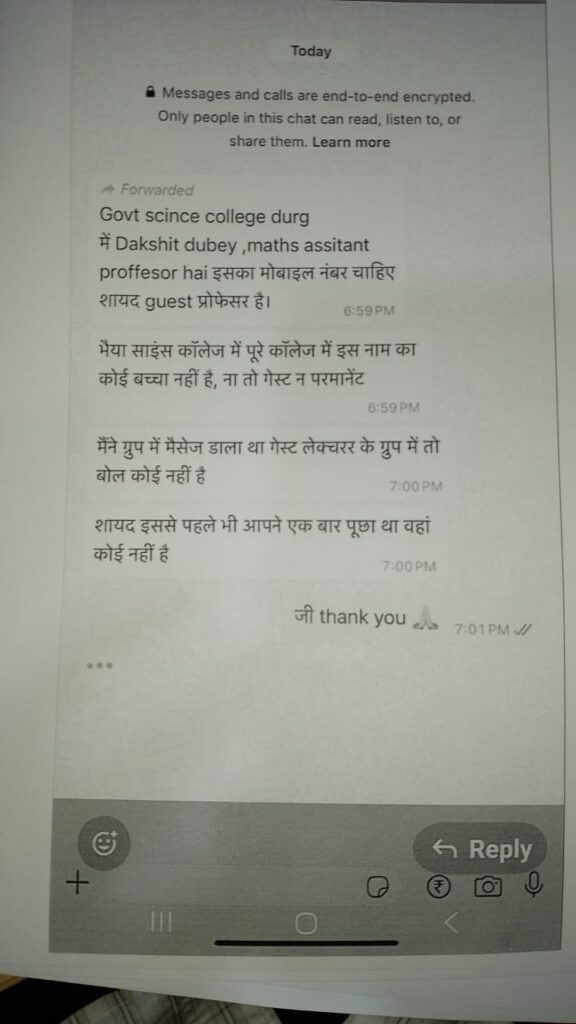 Today
Messages and calls are end-to-end encrypted.
Only people in this chat can read, listen to, or
share them. Learn more
Forwarded
Govt scince college durg
में Dakshit dubey ,maths assitant
proffesor hai इसका मोबाइल नंबर चाहिए
शायद guest प्रोफेसर है।
6:59 PM
भैया साइंस कॉलेज में पूरे कॉलेज में इस नाम का
कोई बच्चा नहीं है, ना तो गेस्ट न परमानेंट
6:59 PM
मैंने ग्रुप में मैसेज डाला था गेस्ट लेक्चरर के ग्रुप में तो
बोल कोई नहीं है
7:00 PM
शायद इससे पहले भी आपने एक बार पूछा था वहां
कोई नहीं है
7:00 PM
जी thank you 🙏 7:01 PM
Reply